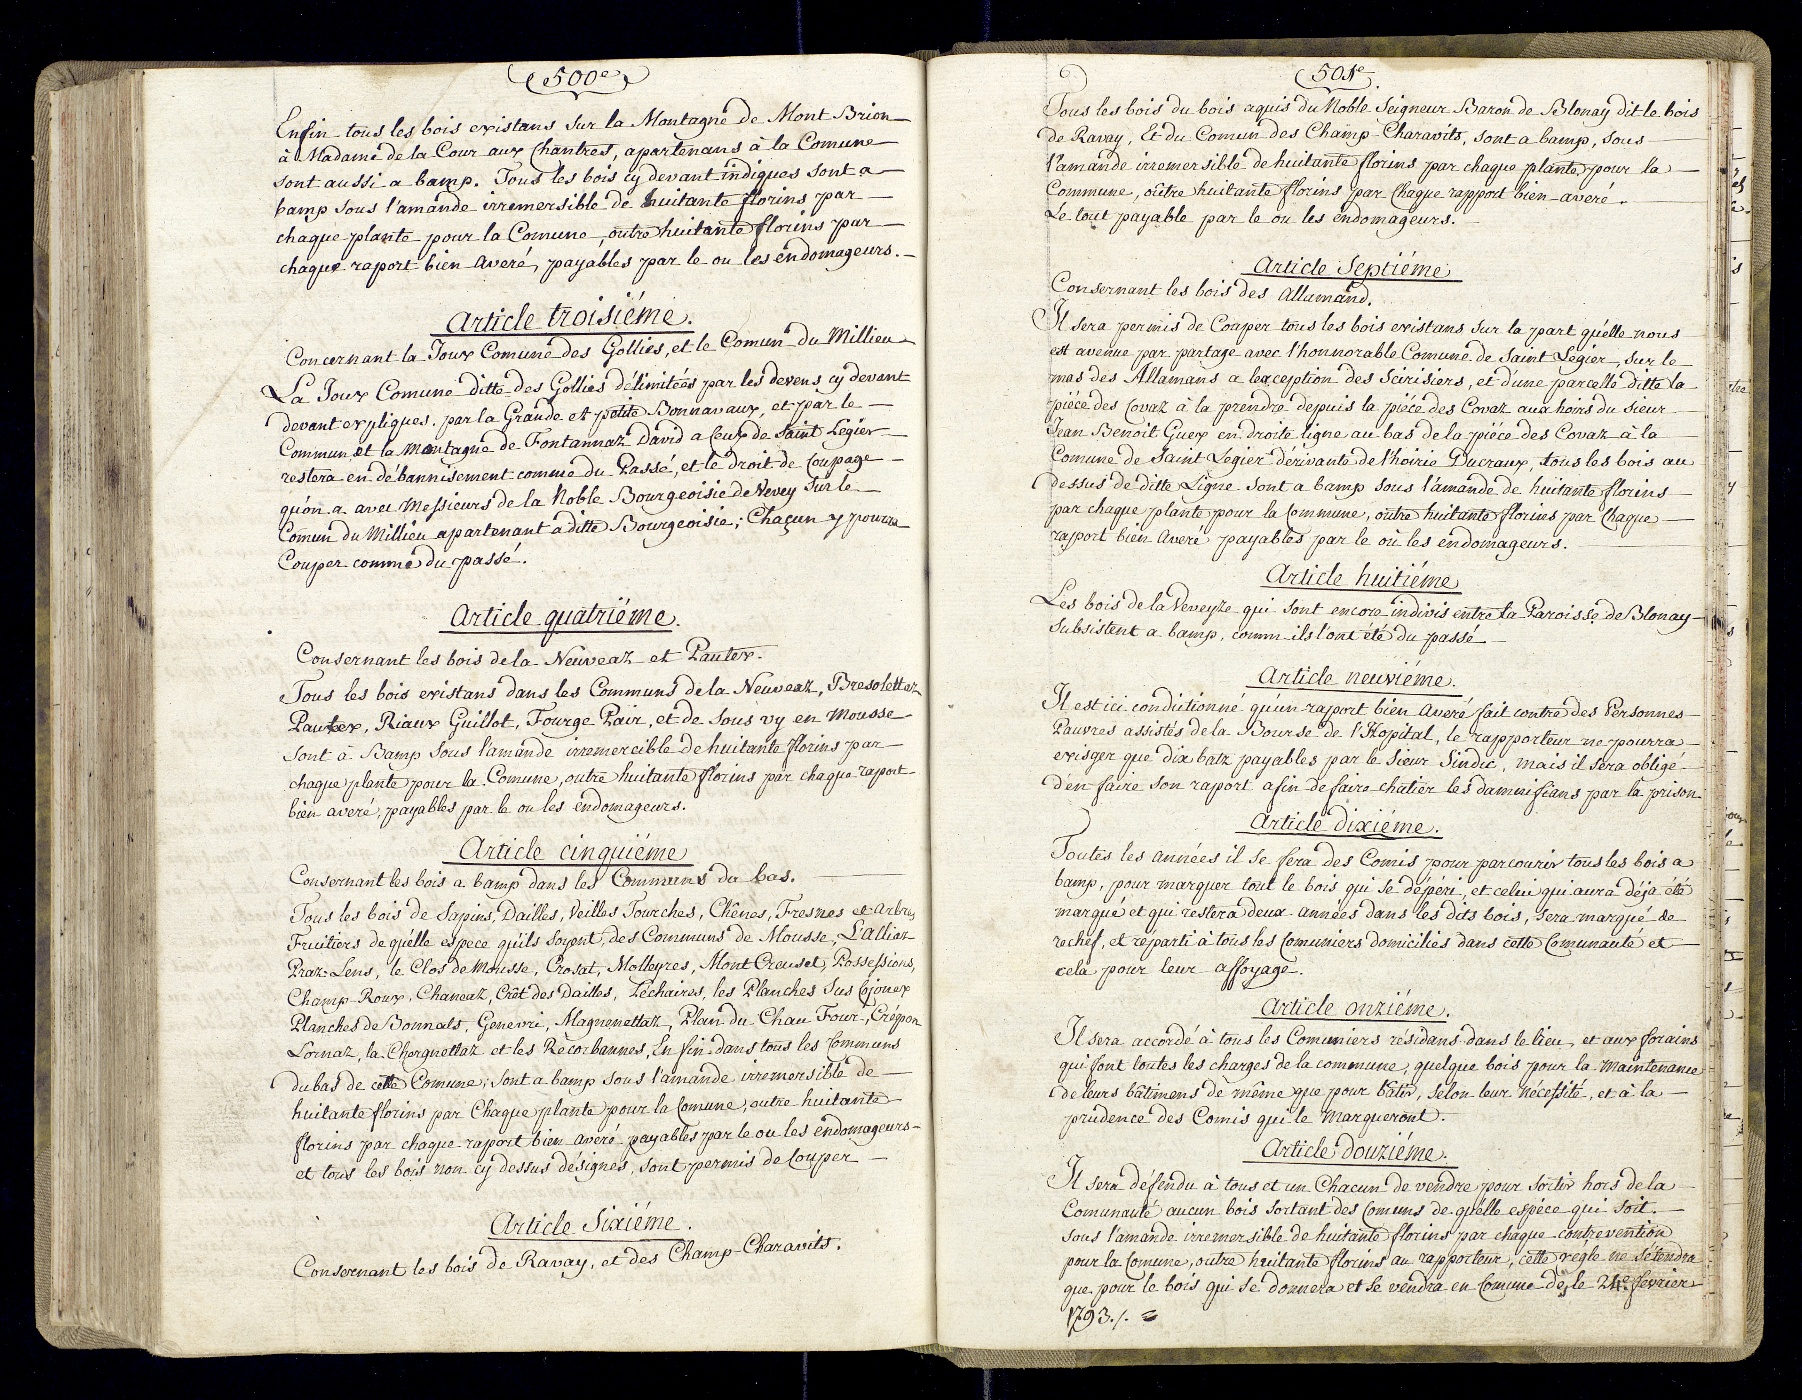 500e
Enfin tous les bois existans sur la Montagne de Mont Brion
à Madame de la Cour aux Chantres, apartenans à la Comune
sont aussi a bamp. Tous les bois cy devant indiques sont a
bamp sous l'amande irremersible de huitante florins par
chaque plante pour la Comune, outre huitante florins par
chaque raport bien Averé, payables par le ou les éndomageurs.
Article troisiéme.
Concernant la Joux Comune des Gollies, et le Comun du Millieu
La Joux Comune ditte des Gollies délimitées par les devens cy devant
devant expliques. par la Grande et petite Bonnavaux, et par le
Commun et la Montagne de Fontannaz David a Ceux de Saint Légier
restera en débannisement comme du Passé, et le droit de Coupage
qu'on a avec Messieurs de la Noble Bourgeoisie de Vevey Sur le
Comun du Millieu apartenant a ditte Bourgeoisie; Chaçun y pourra
Couper comme du passé.
Article quatriéme.
Consernant les bois de la Neuveaz et Pautex.
Tous les bois existans dans les Communs de la Neuveaz, Bresolettaz
Pautex, Riaux Guillot, Fourge Pair, et de Sous vy en Mousse
sont à Bamp Sous l'amande irremercible de huitante florins par
chaque plante pour la Comune, outre huitante florins par chaque raport
bien averé, payables par le ou les éndomageurs.
Article cinquiéme
Consernant les bois a bamp dans les Communs du bas.
Tous les bois de Sapins, Dailles, Veilles Fourches, Chênes, Fresnes et Arbres
Fruitiers de qu'elle espece qu'ils soyent, des Communs de Mousse, L'alliaz
Praz-Lens, le Clos de Mousse, Crosat, Molleyres, Mont Creuset, Possessions,
Champ-Roux, Chaneaz, Crêt des Dailles, Léchaires, les Planches Sus Cojonex
Planches de Bonnats, Genevri, Magnenettaz, Plan du Chau Four, Crépon
Lornaz, la Chergnettaz et les Recorbannes, En fin dans tous les Communs
du bas de cette Comune; sont a bamp sous l'amande irremersible de
huitante florins par Chaque plante pour la Comune, outre huitante
florins par chaque raport bien averé payables par le ou les éndomageurs
et tous les bois non cy dessus désignés, sont permis de Couper
Article Sixiéme.
Consernant les bois de Ravay, et des Champ-Charavits.
501e
Tous les bois du bois aquis du Noble Seigneur Baron de Blonay dit le bois
de Ravay, Et du Comun des Champ-Charavits, sont a bamp, sous
l'amande irremersible de huitante florins par chaque plante, pour la
Commune, oûtre huitante florins par Chaque rapport bien averé.
Le tout payable par le ou les éndomageurs.
Article Septiéme
Consernant les bois des Allamand.
Il sera permis de Couper tous les bois existans sur la part qu'elle nous
est avenue par partage avec l'honnorable Comune de Saint Légier, sur le
mas des Allamans a lexception des Seirisiers, et d'une parcelle ditte la
piéce des Covaz à la prendre depuis la piéce des Covaz aux hoirs du sieur
Jean Benoit Guex en droite ligne au bas de la piéce des Covaz à la
Comune de Saint Legier dérivante de l'hoirie Ducraux, tous les bois au
dessus de ditte Ligne sont a bamp sous l'amande de huitante florins
par chaque plante pour la Commune, outre huitante florins par Chaque
raport bien averé payables par le ou les endomageurs.
Article huitiéme
Les bois de la Veveyze qui sont encore indivis entre la Paroisse de Blonay
Subsistent a bamp, comm-ils l'ont été du passé
Article neuviéme.
Il est ici conditionné qu'un raport bien averé fait contre des Personnes
Pauvres assistés de la Bourse de l'Hopital, le rapporteur ne pourra
exisger que dix batz payables par le Sieur Sindic, mais il sera obligé
d'en faire son raport afin de faire chatier les damnifians par la prison
Article dixiéme.
Toutes les années il se fera des Comis pour parcourir tous les bois a
bamp, pour marquer tout le bois qui se dépéri, et celui qui aura déja été
marqué et qui restera deux années dans les dits bois, sera marqué de
rechef, et réparti à tous les Comuniers domiciliés dans cette Comunauté et
cela pour leur affoyage.
Article onziéme.
Il sera accordé à tous les Comuniers résidans dans le lieu, et aux forains
qui font toutes les charges de la commune, quelque bois pour la Maintenance
de leurs bâtimens de même que pour bâtir, selon leur nécessité, et à la
prudence des Comis qui le Marqueront.
Article douziéme.
Il sera défendu à tous et un Chacun de vendre pour sortir hors de la
Comunauté aucun bois sortant des Comuns de qu'elle espéce qui soit.
sous l'amande irremersible de huitante florins par chaque contrevention
pour la Comune, outre huitante florins au rapporteur, cette régle ne s'étendra
que pour le bois qui se donnera et se vendra en Comune dès le 24e février
1793./.